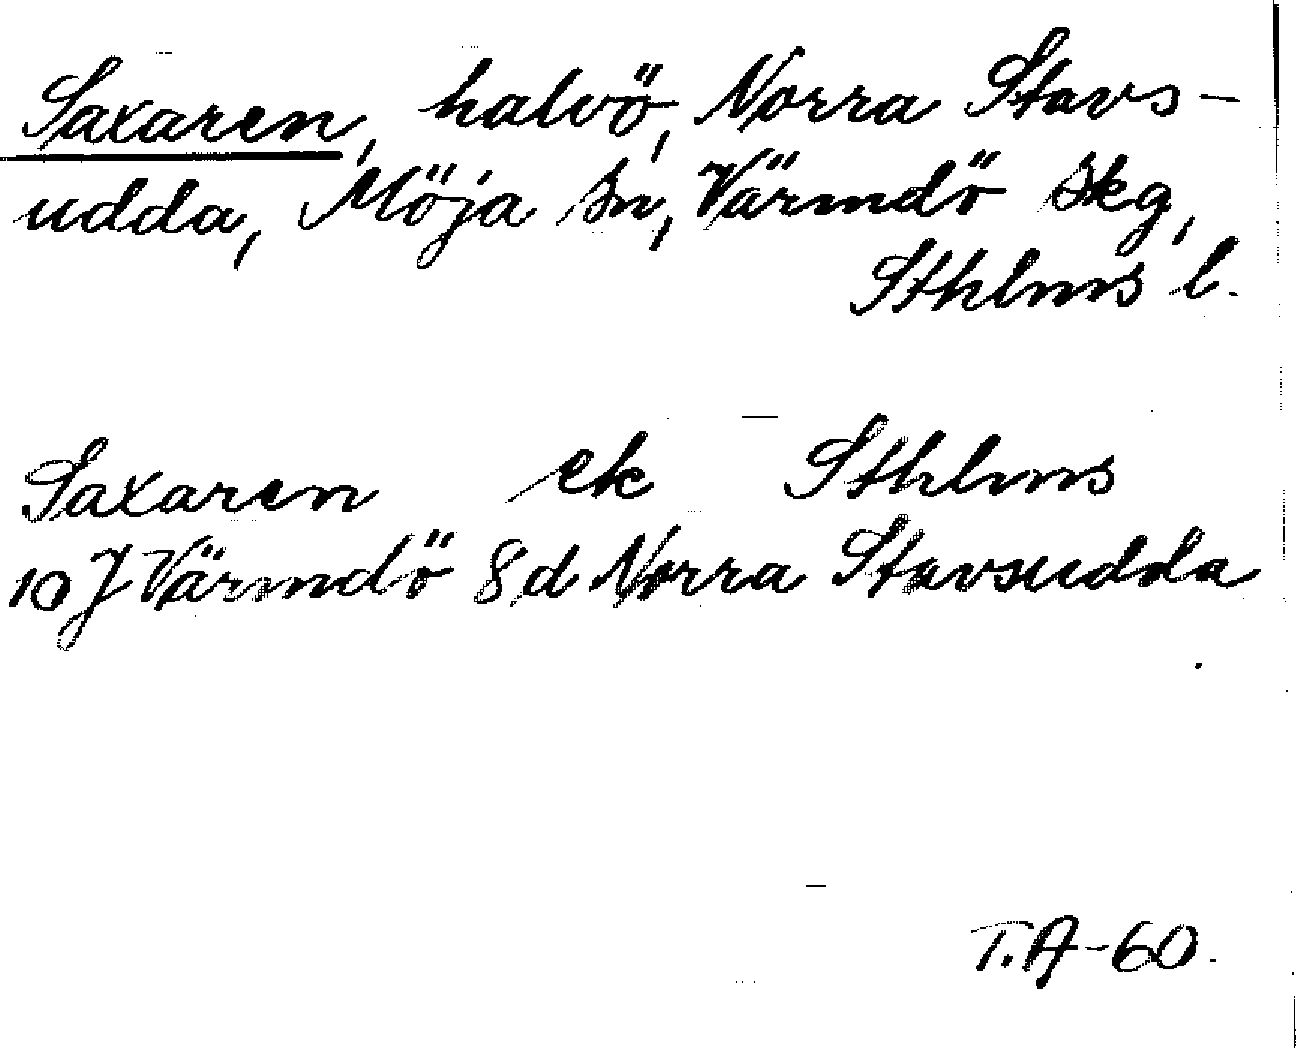 Saxaren, halvö, Norra Stavs-
udda, Möja sn, Värmdö skg,
Sthlms l.
Saxaren ek Sthlms
10 J Värmdö 8d Norra Stavsudda
T.A-60.